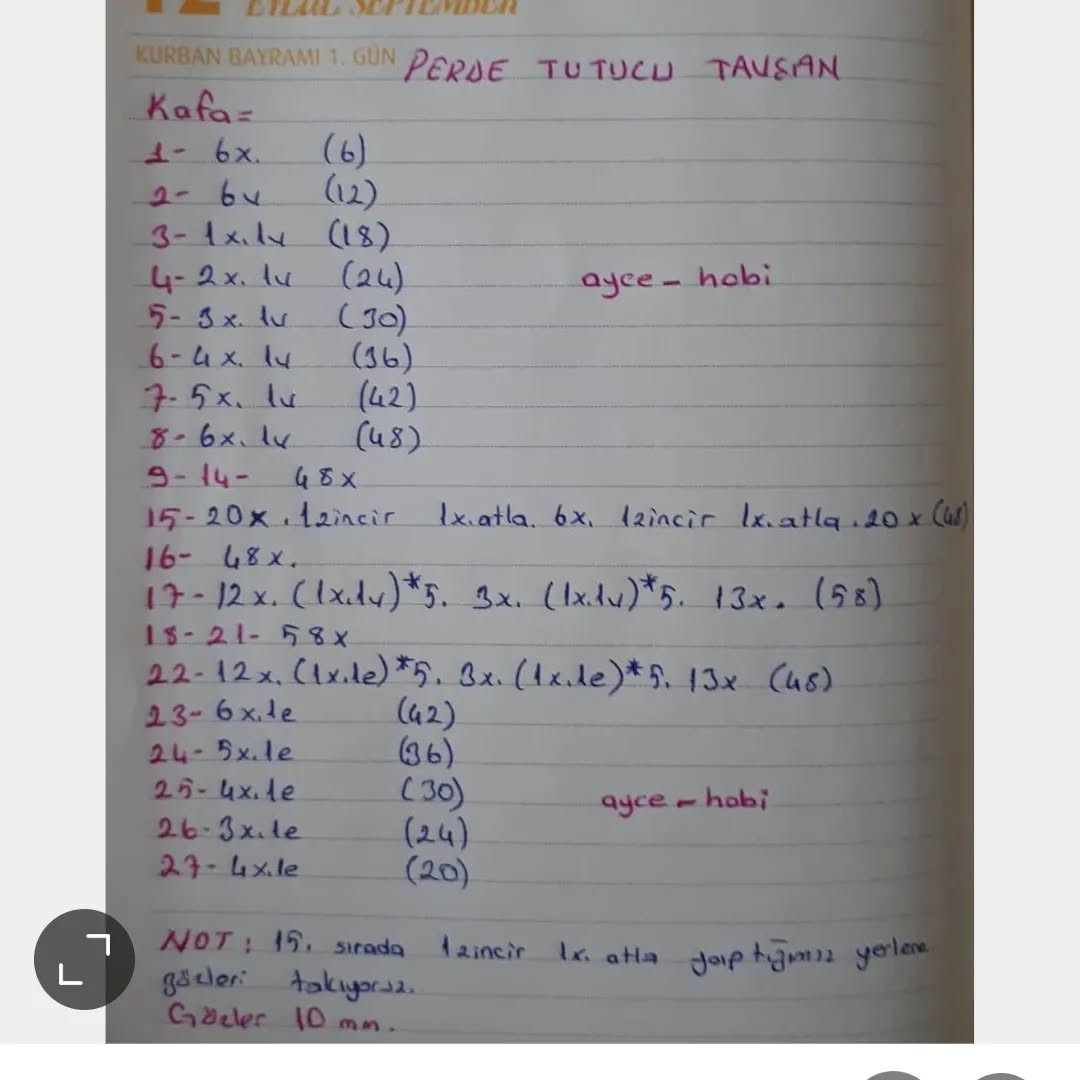 12 EYLÜL SEPTEMBER
KURBAN BAYRAMI 1. GÜN PERDE TUTUCU TAVŞAN
Kafa=
1- 6x. (6)
2- 6v (12)
3- 1x.1v (18)
4- 2x. 1v (24)
ayce - hobi
5- 3x. 1v (30)
6- 4x. 1v (36)
7- 5x. 1v (42)
8- 6x. 1v (48)
9- 14- 48x
15- 20x. 1zincir 1x.atla. 6x. 1zincir 1x.atla. 20x (48)
16- 48x.
17- 12x. (1x.1v)*5. 3x. (1x.1v)*5. 13x. (58)
18- 21- 58x
22- 12x. (1x.1e)*5. 3x. (1x.1e)*5. 13x (48)
23- 6x.1e (42)
24- 5x.1e (36)
25- 4x.1e (30)
ayce - hobi
26- 3x.1e (24)
27- 4x.1e (20)
NOT: 15. sırada 1zincir 1x. atla yaptığımız yerlere
gözleri takıyoruz.
Gözler 10 mm.